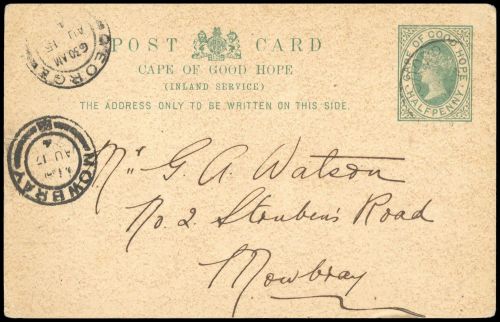 POST CARD
CAPE OF GOOD HOPE
(INLAND SERVICE)
THE ADDRESS ONLY TO BE WRITTEN ON THIS SIDE.
CAPE OF GOOD HOPE
HALFPENNY
GEORGE
6 30 AM
AU 15
MOWBRAY
AU 17
Mrs G. A. Watson
No. 2 Steuben's Road
Mowbray